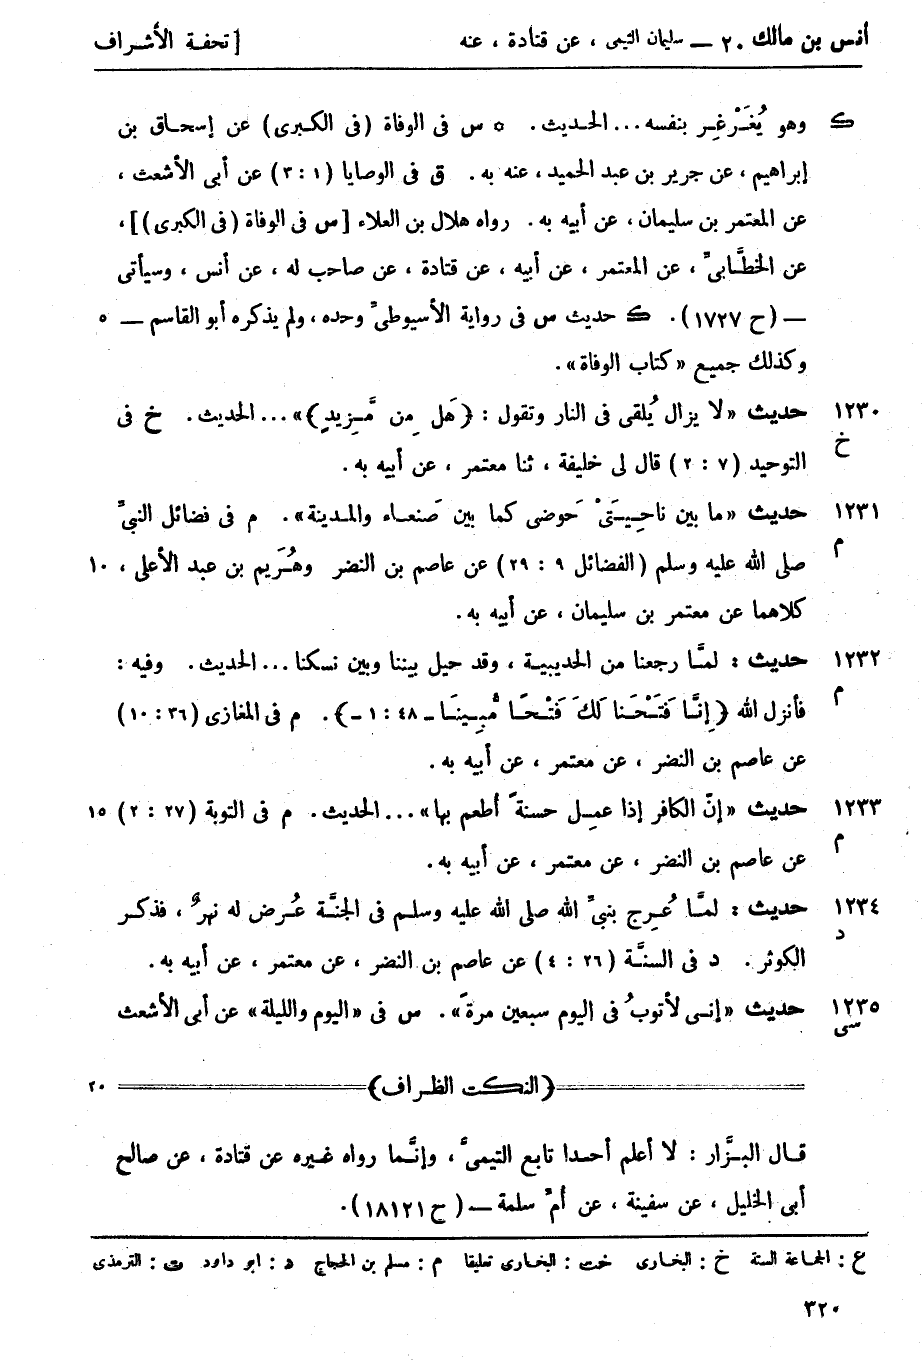 أنس بن مالك ٢٠ — سليمان التيمى ، عن قتادة ، عنه [ تحفة الأشراف
ك وهو يُغَرْغِر بنفسه ... الحديث . ٥ س فى الوفاة (فى الكبرى) عن إسحاق بن
إبراهيم ، عن جرير بن عبد الحميد ، عنه به . ق فى الوصايا (١ : ٣) عن أبى الأشعث ،
عن المعتمر بن سليمان ، عن أبيه به . رواه هلال بن العلاء [س فى الوفاة (فى الكبرى)] ،
عن الخطَّابىّ ، عن المعتمر ، عن أبيه ، عن قتادة ، عن صاحب له ، عن أنس ، وسيأتى
— (ح ١٧٢٧) . ك حديث س فى رواية الأسيوطىّ وحده ، ولم يذكره أبو القاسم — ٥
وكذلك جميع «كتاب الوفاة» .
١٢٣٠ حديث «لا يزال يُلقى فى النار وتقول : ﴿هَل مِن مَّزِيدٍ﴾» ... الحديث . خ فى
خ التوحيد (٧ : ٢) قال لى خليفة ، ثنا معتمر ، عن أبيه به .
١٢٣١ حديث «ما بين ناحِيـَتَىْ حَوضى كما بين صَنعاء والمدينة» . م فى فضائل النبىّ
م صلى الله عليه وسلم (الفضائل ٩ : ٢٩) عن عاصم بن النضر وهُرَيم بن عبد الأعلى ، ١٠
كلاهما عن معتمر بن سليمان ، عن أبيه به .
١٢٣٢ حديث : لمَّا رجعنا من الحديبية ، وقد حيل بيننا وبين نسكنا ... الحديث . وفيه :
م فأنزل الله ﴿إِنَّا فَتَحْنَا لَكَ فَتْحًا مُّبِينًا — ٤٨ : ١ —﴾ . م فى المغازى (٣٦ : ١٠)
عن عاصم بن النضر ، عن معتمر ، عن أبيه به .
١٢٣٣ حديث «إنّ الكافر إذا عمِل حسنةً أطعم بها» ... الحديث . م فى التوبة (٢٧ : ٢) ١٥
م عن عاصم بن النضر ، عن معتمر ، عن أبيه به .
١٢٣٤ حديث : لمَّا عُرِج بنبىّ الله صلى الله عليه وسلم فى الجنَّة عُرض له نهرٌ ، فذكر
د الكوثر . د فى السنَّة (٢٦ : ٤) عن عاصم بن النضر ، عن معتمر ، عن أبيه به .
١٢٣٥ حديث «إنى لأتوبُ فى اليوم سبعين مرةً» . س فى «اليوم والليلة» عن أبى الأشعث
سى
﴿النكت الظراف﴾ ٢٠
قال البزَّار : لا أعلم أحدا تابع التيمىَّ ، وإنَّما رواه غيره عن قتادة ، عن صالح
أبى الخليل ، عن سفينة ، عن أمّ سلمة — (ح ١٨١٢١) .
ع : الجماعة الستة خ : البخارى خت : البخارى تعليقا م : مسلم بن الحجاج د : ابو داود ت : الترمذى
٣٢٠